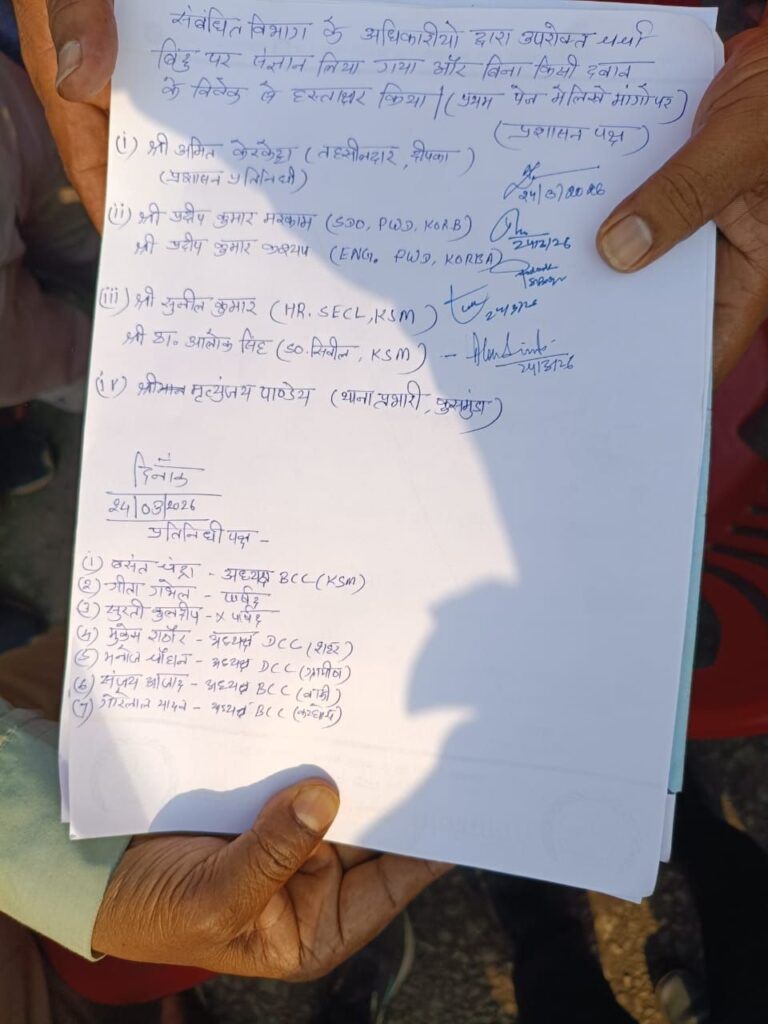 संबंधित विभाग के अधिकारीयो द्वारा उपरोक्त चर्चा
बिंदु पर संज्ञान लिया गया और बिना किसी दबाव
के विवेक से हस्ताक्षर किया | (प्रथम पेज मे लिखे मांगो पर)
(प्रशासन पक्ष)
(i) श्री अमित केरकेट्टा (तहसीलदार, दीपका)
(प्रशासन प्रतिनिधी)
24/3/2026
(ii) श्री प्रदीप कुमार मरकाम (SDO, PWD, KORB)
24/3/26
श्री प्रदीप कुमार कश्यप (ENG. PWD, KORBA)
(iii) श्री सुनील कुमार (HR. SECL, KSM)
24/3/26
श्री डा. आलोक सिंह (SO. सिवील, KSM) -
24/3/26
(iv) श्रीमान मृत्युंजय पाण्डेय (थाना प्रभारी, कुसमुंडा)
दिनाँक
24/03/2026
प्रतिनिधी पक्ष -
(1) बसंत चंद्रा - अध्यक्ष BCC (KSM)
(2) गीता गभेल - पार्षद
(3) सुरती कुलदीप - x पार्षद
(4) मुकेश राठौर - अध्यक्ष DCC (शहर)
(5) मनोज चौहान - अध्यक्ष DCC (ग्रामीण)
(6) संजय आजाद - अध्यक्ष BCC
(7) गोरेलाल यादव - अध्यक्ष BCC